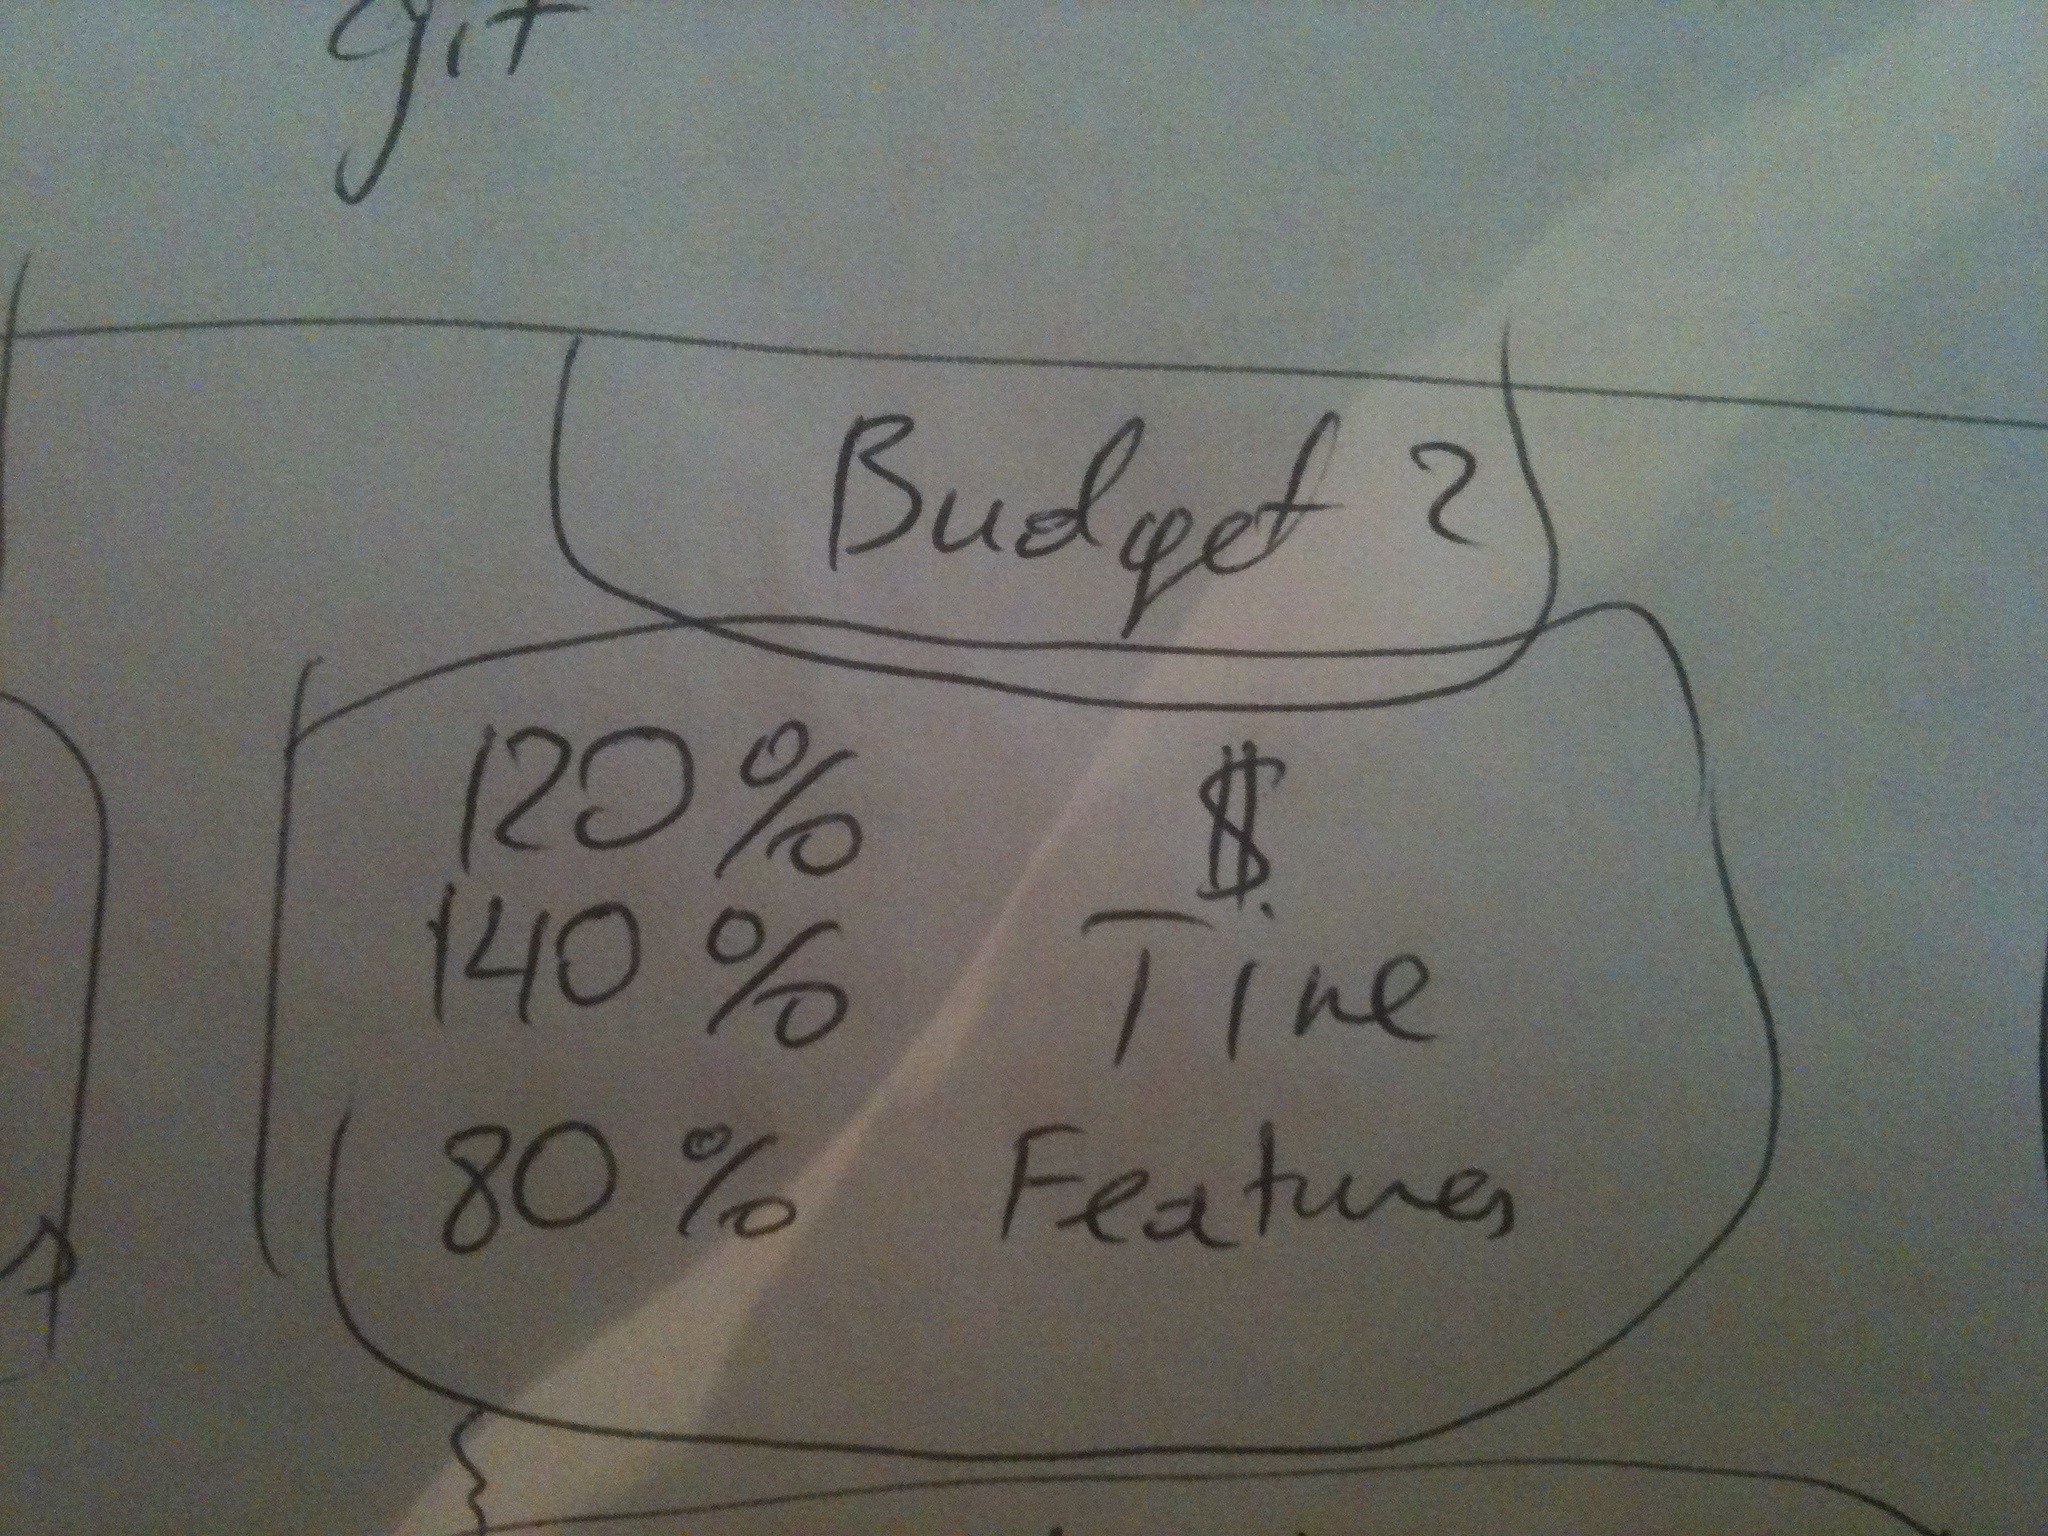 git
Budget ?
120% $
140% Time
80% Features